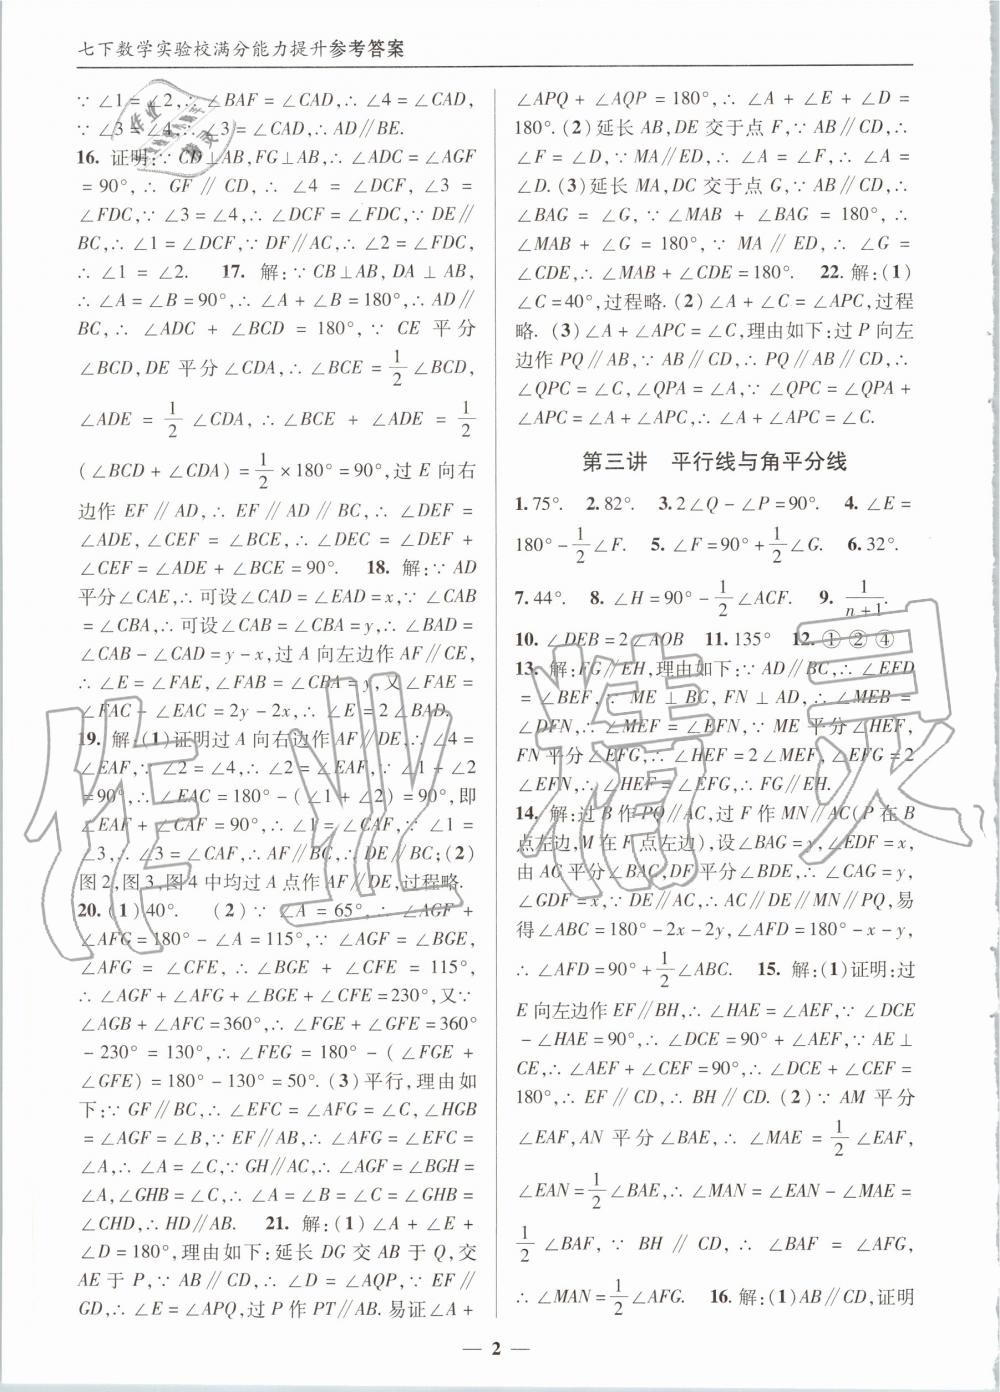 七下数学实验校满分能力提升参考答案
∵∠1=∠2,∴∠BAF=∠CAD,∴∠4=∠CAD,
∵∠3=∠4,∴∠3=∠CAD,∴AD∥BE.
16. 证明:∵CD⊥AB,FG⊥AB,∴∠ADC=∠AGF
=90°,∴GF∥CD,∴∠4=∠DCF,∠3=
∠FDC,∵∠3=∠4,∴∠DCF=∠FDC,∵DE∥
BC,∴∠1=∠DCF,∵DF∥AC,∴∠2=∠FDC,
∴∠1=∠2. 17. 解:∵CB⊥AB,DA⊥AB,
∴∠A=∠B=90°,∴∠A+∠B=180°,∴AD∥
BC,∴∠ADC+∠BCD=180°,∵CE平分
∠BCD,DE平分∠CDA,∴∠BCE=1/2∠BCD,
∠ADE=1/2∠CDA,∴∠BCE+∠ADE=1/2
(∠BCD+∠CDA)=1/2×180°=90°,过E向右
边作EF∥AD,∴EF∥AD∥BC,∴∠DEF=
∠ADE,∠CEF=∠BCE,∴∠DEC=∠DEF+
∠CEF=∠ADE+∠BCE=90°. 18. 解:∵AD
平分∠CAE,∴可设∠CAD=∠EAD=x,∵∠CAB
=∠CBA,∴可设∠CAB=∠CBA=y,∴∠BAD=
∠CAB-∠CAD=y-x,过A向左边作AF∥CE,
∴∠E=∠FAE,∠FAB=∠CBA=y,又∠FAE=
∠FAC-∠EAC=2y-2x,∴∠E=2∠BAD.
19. 解:(1)证明过A向右边作AF∥DE,∴∠4=
∠EAF,∵∠2=∠4,∴∠2=∠EAF,∵∠1+∠2
=90°,∴∠EAC=180°-(∠1+∠2)=90°,即
∠EAF+∠CAF=90°,∴∠1=∠CAF,∵∠1=
∠3,∴∠3=∠CAF,∴AF∥BC,∴DE∥BC;(2)
图2,图3,图4中均过A点作AF∥DE,过程略.
20. (1)40°. (2)∵∠A=65°,∴∠AGF+
∠AFG=180°-∠A=115°,∵∠AGF=∠BGE,
∠AFG=∠CFE,∴∠BGE+∠CFE=115°,
∴∠AGF+∠AFG+∠BGE+∠CFE=230°,又∵
∠AGB+∠AFC=360°,∴∠FGE+∠GFE=360°
-230°=130°,∴∠FEG=180°-(∠FGE+
∠GFE)=180°-130°=50°. (3)平行,理由如
下:∵GF∥BC,∴∠EFC=∠AFG=∠C,∠HGB
=∠AGF=∠B,∵EF∥AB,∴∠AFG=∠EFC=
∠A,∴∠A=∠C,∵GH∥AC,∴∠AGF=∠BGH=
∠A,∠GHB=∠C,∴∠A=∠B=∠C=∠GHB=
∠CHD,∴HD∥AB. 21. 解:(1)∠A+∠E+
∠D=180°,理由如下:延长DG交AB于Q,交
AE于P,∵AB∥CD,∴∠D=∠AQP,∵EF∥
GD,∴∠E=∠APQ,过P作PT∥AB.易证∠A+
∠APQ+∠AQP=180°,∴∠A+∠E+∠D=
180°. (2)延长AB,DE交于点F,∵AB∥CD,∴
∠F=∠D,∵MA∥ED,∴∠A=∠F,∴∠A=
∠D. (3)延长MA,DC交于点G,∵AB∥CD,∴
∠BAG=∠G,∵∠MAB+∠BAG=180°,∴
∠MAB+∠G=180°,∵MA∥ED,∴∠G=
∠CDE,∴∠MAB+∠CDE=180°. 22. 解:(1)
∠C=40°,过程略. (2)∠A+∠C=∠APC,过程
略. (3)∠A+∠APC=∠C,理由如下:过P向左
边作PQ∥AB,∵AB∥CD,∴PQ∥AB∥CD,∴
∠QPC=∠C,∠QPA=∠A,∵∠QPC=∠QPA+
∠APC=∠A+∠APC,∴∠A+∠APC=∠C.
第三讲 平行线与角平分线
1. 75°. 2. 82°. 3. 2∠Q-∠P=90°. 4. ∠E=
180°-1/2∠F. 5. ∠F=90°+1/2∠G. 6. 32°.
7. 44°. 8. ∠H=90°-1/2∠ACF. 9. 1/(n+1).
10. ∠DEB=2∠AOB 11. 135° 12. ①②④
13. 解:FG∥EH,理由如下:∵AD∥BC,∴∠EFD
=∠BEF,∵ME⊥BC,FN⊥AD,∴∠MEB=
∠DFN,∴∠MEF=∠EFN,∵ME平分∠HEF,
FN平分∠EFG,∴∠HEF=2∠MEF,∠EFG=2
∠EFN,∴∠HEF=∠EFG,∴FG∥EH.
14. 解:过B作PQ∥AC,过F作MN∥AC(P在B
点左边,M在F点左边),设∠BAG=y,∠EDF=x,
由AC平分∠BAG,DF平分∠BDE,∴∠CAG=y,
∠GDF=x,∵DE∥AC,∴AC∥DE∥MN∥PQ,易
得∠ABC=180°-2x-2y,∠AFD=180°-x-y,
∴∠AFD=90°+1/2∠ABC. 15. 解:(1)证明:过
E向左边作EF∥BH,∴∠HAE=∠AEF,∵∠DCE
-∠HAE=90°,∴∠DCE=90°+∠AEF,∵AE⊥
CE,∴∠AEF+∠CEF=90°,∴∠DCE+∠CEF=
180°,∴EF∥CD,∴BH∥CD. (2)∵AM平分
∠EAF,AN平分∠BAE,∴∠MAE=1/2∠EAF,
∠EAN=1/2∠BAE,∴∠MAN=∠EAN-∠MAE=
1/2∠BAF,∵BH∥CD,∴∠BAF=∠AFG,
∴∠MAN=1/2∠AFG. 16. 解:(1)AB∥CD,证明
— 2 —
作业精灵